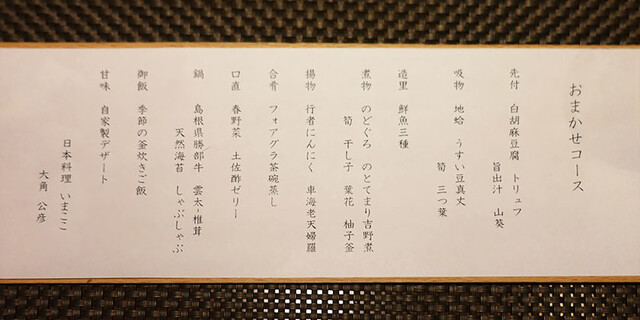 おまかせコース
先付 白胡麻豆腐 トリュフ
旨出汁 山葵
吸物 地蛤 うすい豆真丈
筍 三つ葉
造里 鮮魚三種
煮物 のどぐろ のとてまり吉野煮
筍 干し子 葉花 柚子釜
揚物 行者にんにく 車海老天婦羅
合肴 フォアグラ茶碗蒸し
口直 春野菜 土佐酢ゼリー
鍋 島根県勝部牛 雲太・椎茸
天然海苔 しゃぶしゃぶ
御飯 季節の釜炊きご飯
甘味 自家製デザート
日本料理 いまここ
大角 公彦